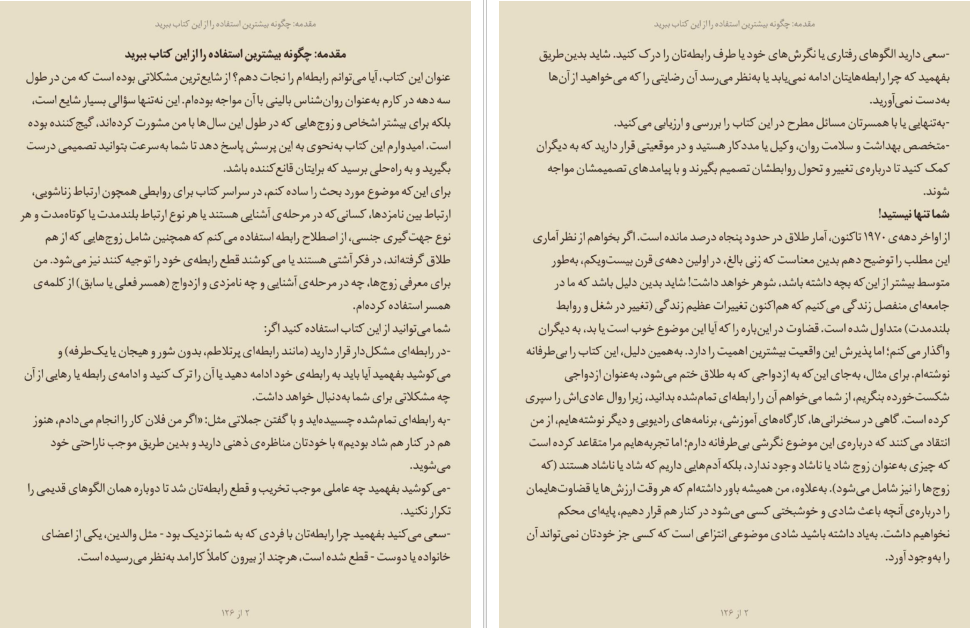 مقدمه: چگونه بیشترین استفاده را از این کتاب ببرید
مقدمه: چگونه بیشترین استفاده را از این کتاب ببرید
عنوان این کتاب، آیا می‌توانم رابطه‌ام را نجات دهم؟ از شایع‌ترین مشکلاتی بوده است که من در طول
سه دهه در کارم به‌عنوان روان‌شناس بالینی با آن مواجه بوده‌ام. این نه‌تنها سؤالی بسیار شایع است،
بلکه برای بیشتر اشخاص و زوج‌هایی که در طول این سال‌ها با من مشورت کرده‌اند، گیج‌کننده بوده
است. امیدوارم این کتاب به‌نحوی به این پرسش پاسخ دهد تا شما به‌سرعت بتوانید تصمیمی درست
بگیرید و به راه‌حلی برسید که برایتان قانع‌کننده باشد.
برای این‌که موضوع مورد بحث را ساده کنم، در سراسر کتاب برای روابطی همچون ارتباط زناشویی،
ارتباط بین نامزدها، کسانی‌که در مرحله‌ی آشنایی هستند یا هر نوع ارتباط بلندمدت یا کوتاه‌مدت و هر
نوع جهت‌گیری جنسی، از اصطلاح رابطه استفاده می‌کنم که همچنین شامل زوج‌هایی که از هم
طلاق گرفته‌اند، در فکر آشتی هستند یا می‌کوشند قطع رابطه‌ی خود را توجیه کنند نیز می‌شود. من
برای معرفی زوج‌ها، چه در مرحله‌ی آشنایی و چه نامزدی و ازدواج (همسر فعلی یا سابق) از کلمه‌ی
همسر استفاده کرده‌ام.
شما می‌توانید از این کتاب استفاده کنید اگر:
-در رابطه‌ای مشکل‌دار قرار دارید (مانند رابطه‌ای پرتلاطم، بدون شور و هیجان یا یک‌طرفه) و
می‌کوشید بفهمید آیا باید به رابطه‌ی خود ادامه دهید یا آن را ترک کنید و ادامه‌ی رابطه یا رهایی از آن
چه مشکلاتی برای شما به‌دنبال خواهد داشت.
-به رابطه‌ای تمام‌شده چسبیده‌اید و با گفتن جملاتی مثل: «اگر من فلان کار را انجام می‌دادم، هنوز
هم در کنار هم شاد بودیم» با خودتان مناظره‌ی ذهنی دارید و بدین طریق موجب ناراحتی خود
می‌شوید.
-می‌کوشید بفهمید چه عاملی موجب تخریب و قطع رابطه‌تان شد تا دوباره همان الگوهای قدیمی را
تکرار نکنید.
-سعی می‌کنید بفهمید چرا رابطه‌تان با فردی که به شما نزدیک بود - مثل والدین، یکی از اعضای
خانواده یا دوست - قطع شده است، هرچند از بیرون کاملاً کارامد به‌نظر می‌رسیده است.
۲ از ۱۲۶
مقدمه: چگونه بیشترین استفاده را از این کتاب ببرید
-سعی دارید الگوهای رفتاری یا نگرش‌های خود یا طرف رابطه‌تان را درک کنید. شاید بدین‌طریق
بفهمید که چرا رابطه‌هایتان ادامه نمی‌یابد یا به‌نظر می‌رسد آن رضایتی را که می‌خواهید از آن‌ها
به‌دست نمی‌آورید.
-به‌تنهایی یا با همسرتان مسائل مطرح در این کتاب را بررسی و ارزیابی می‌کنید.
-متخصص بهداشت و سلامت روان، وکیل یا مددکار هستید و در موقعیتی قرار دارید که به دیگران
کمک کنید تا درباره‌ی تغییر و تحول روابطشان تصمیم بگیرند و با پیامدهای تصمیمشان مواجه
شوند.
شما تنها نیستید!
از اواخر دهه‌ی ۱۹۷۰ تاکنون، آمار طلاق در حدود پنجاه درصد مانده است. اگر بخواهم از نظر آماری
این مطلب را توضیح دهم بدین معناست که زنی بالغ، در اولین دهه‌ی قرن بیست‌ویکم، به‌طور
متوسط بیشتر از این‌که بچه داشته باشد، شوهر خواهد داشت! شاید بدین دلیل باشد که ما در
جامعه‌ای منفصل زندگی می‌کنیم که هم‌اکنون تغییرات عظیم زندگی (تغییر در شغل و روابط
بلندمدت) متداول شده است. قضاوت در این‌باره را که آیا این موضوع خوب است یا بد، به دیگران
واگذار می‌کنم؛ اما پذیرش این واقعیت بیشترین اهمیت را دارد. به‌همین دلیل، این کتاب را بی‌طرفانه
نوشته‌ام. برای مثال، به‌جای این‌که به ازدواجی که به طلاق ختم می‌شود، به‌عنوان ازدواجی
شکست‌خورده بنگریم، از شما می‌خواهم آن را رابطه‌ای تمام‌شده بدانید، زیرا روال عادی‌اش را سپری
کرده است. گاهی در سخنرانی‌ها، کارگاه‌های آموزشی، برنامه‌های رادیویی و دیگر نوشته‌هایم، از من
انتقاد می‌کنند که درباره‌ی این موضوع نگرشی بی‌طرفانه دارم؛ اما تجربه‌هایم مرا متقاعد کرده است
که چیزی به‌عنوان زوج شاد یا ناشاد وجود ندارد، بلکه آدم‌هایی داریم که شاد یا ناشاد هستند (که
زوج‌ها را نیز شامل می‌شود). به‌علاوه، من همیشه باور داشته‌ام که هر وقت ارزش‌ها یا قضاوت‌هایمان
را درباره‌ی آنچه باعث شادی و خوشبختی کسی می‌شود در کنار هم قرار دهیم، پایه‌ای محکم
نخواهیم داشت. به‌یاد داشته باشید شادی موضوعی انتزاعی است که کسی جز خودتان نمی‌تواند آن
را به‌وجود آورد.
۳ از ۱۲۶